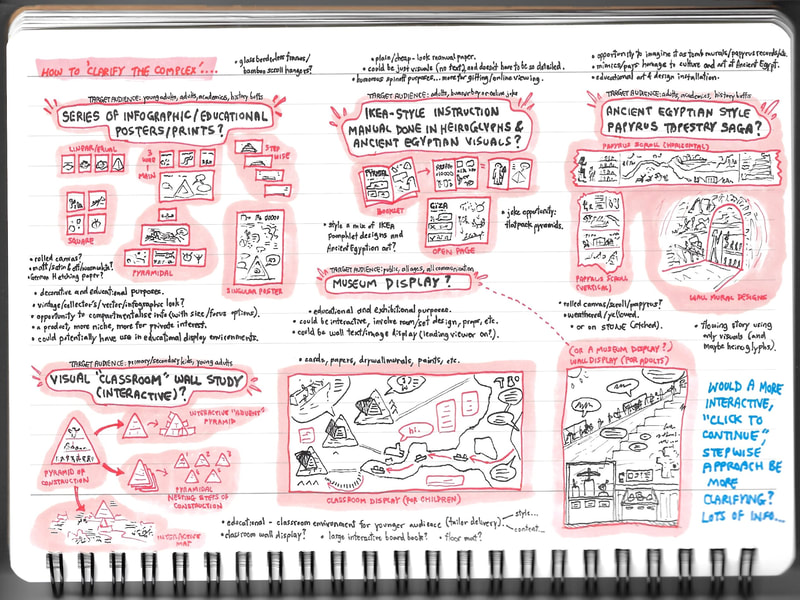 HOW TO "CLARIFY THE COMPLEX"....
• glass borderless frames/
bamboo scroll hangers?
TARGET AUDIENCE: young adults, adults, academics, history buffs
SERIES OF INFOGRAPHIC/EDUCATIONAL
POSTERS/PRINTS?
LINEAR/EQUAL
3 WAY
1 MAIN
STEP WISE
SQUARE
PYRAMIDAL
SINGULAR POSTER
• rolled canvas?
German Hetching paper?
• decorative and educational purposes.
• vintage/collector's/vector/infographic look?
• opportunity to compartmentalise info (with size/focus options).
• a product, more niche, more for private interest.
• could potentially have use in educational display environments.
• plain/cheap-look manual paper.
• could be just visuals (no text) and doesn't have to be so detailed.
• humorous spinoff purposes... more for gifting/online viewing.
TARGET AUDIENCE: adults, humour buy or online joke
IKEA-STYLE INSTRUCTION
MANUAL DONE IN HEIROGLYPHS &
ANCIENT EGYPTIAN VISUALS?
PYRAMID
BOOKLET
GIZA
OPEN PAGE
• style a mix of IKEA
pamphlet designs and
Ancient Egyptian art?
• joke opportunity:
flatpack pyramids.
• opportunity to imagine it as tomb murals/papyrus records/etc.
• mimics/pays homage to culture and art of Ancient Egypt.
• educational art & design installation.
TARGET AUDIENCE: adults, academics, history buffs
ANCIENT EGYPTIAN STYLE
PAPYRUS TAPESTRY SAGA?
PAPYRUS SCROLL (HORIZONTAL)
PAPYRUS SCROLL
(VERTICAL)
WALL MURAL DESIGNS
• rolled canvas/scroll/papyrus?
• weathered/yellowed.
• or on STONE (etched).
• flowing story using
only visuals (and
maybe heiroglyphs).
TARGET AUDIENCE: public, all ages, all communication
MUSEUM DISPLAY?
• educational and exhibitional purposes.
• could be interactive, involve room/set design, props, etc.
• could be wall text/image display (leading viewer on?).
• cards, papers, drywall murals, paints, etc.
hi.
CLASSROOM DISPLAY (FOR CHILDREN)
(OR A MUSEUM DISPLAY?)
WALL DISPLAY (FOR ADULTS)
TARGET AUDIENCE: primary/secondary kids, young adults
VISUAL "CLASSROOM" WALL STUDY
(INTERACTIVE)?
INTERACTIVE "ADVENT"
PYRAMID
PYRAMID OF
CONSTRUCTION
PYRAMIDAL
NESTING STEPS OF
CONSTRUCTION
INTERACTIVE
MAT
• educational - classroom environment for younger audience (tailor delivery)
style...
content...
• classroom wall display?
• large interactive board book?
• floor mat?
WOULD A MORE
INTERACTIVE,
"CLICK TO
CONTINUE"
STEPWISE
APPROACH BE
MORE
CLARIFYING?
LOTS OF INFO...